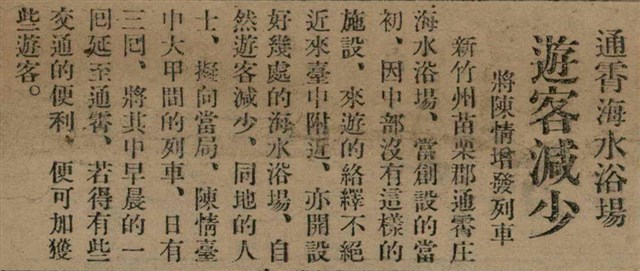 通霄海水浴場
遊客減少
將陳情增發列車
新竹州苗栗郡通霄庄
海水浴場、當創設的當
初、因中部沒有這樣的
施設、來遊的絡繹不絕
近來臺中附近、亦開設
好幾處的海水浴場、自
然遊客減少、同地的人
士、擬向當局、陳情臺
中大甲間的列車、日有
三回、將其中早晨的一
回延至通霄、若得有些
交通的便利、便可加獲
些遊客。